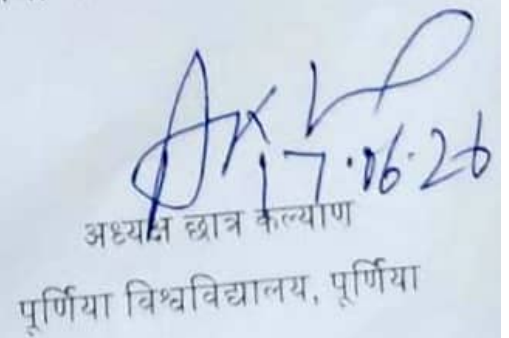 17.06.26
अध्यक्ष छात्र कल्याण
पूर्णिया विश्वविद्यालय, पूर्णिया